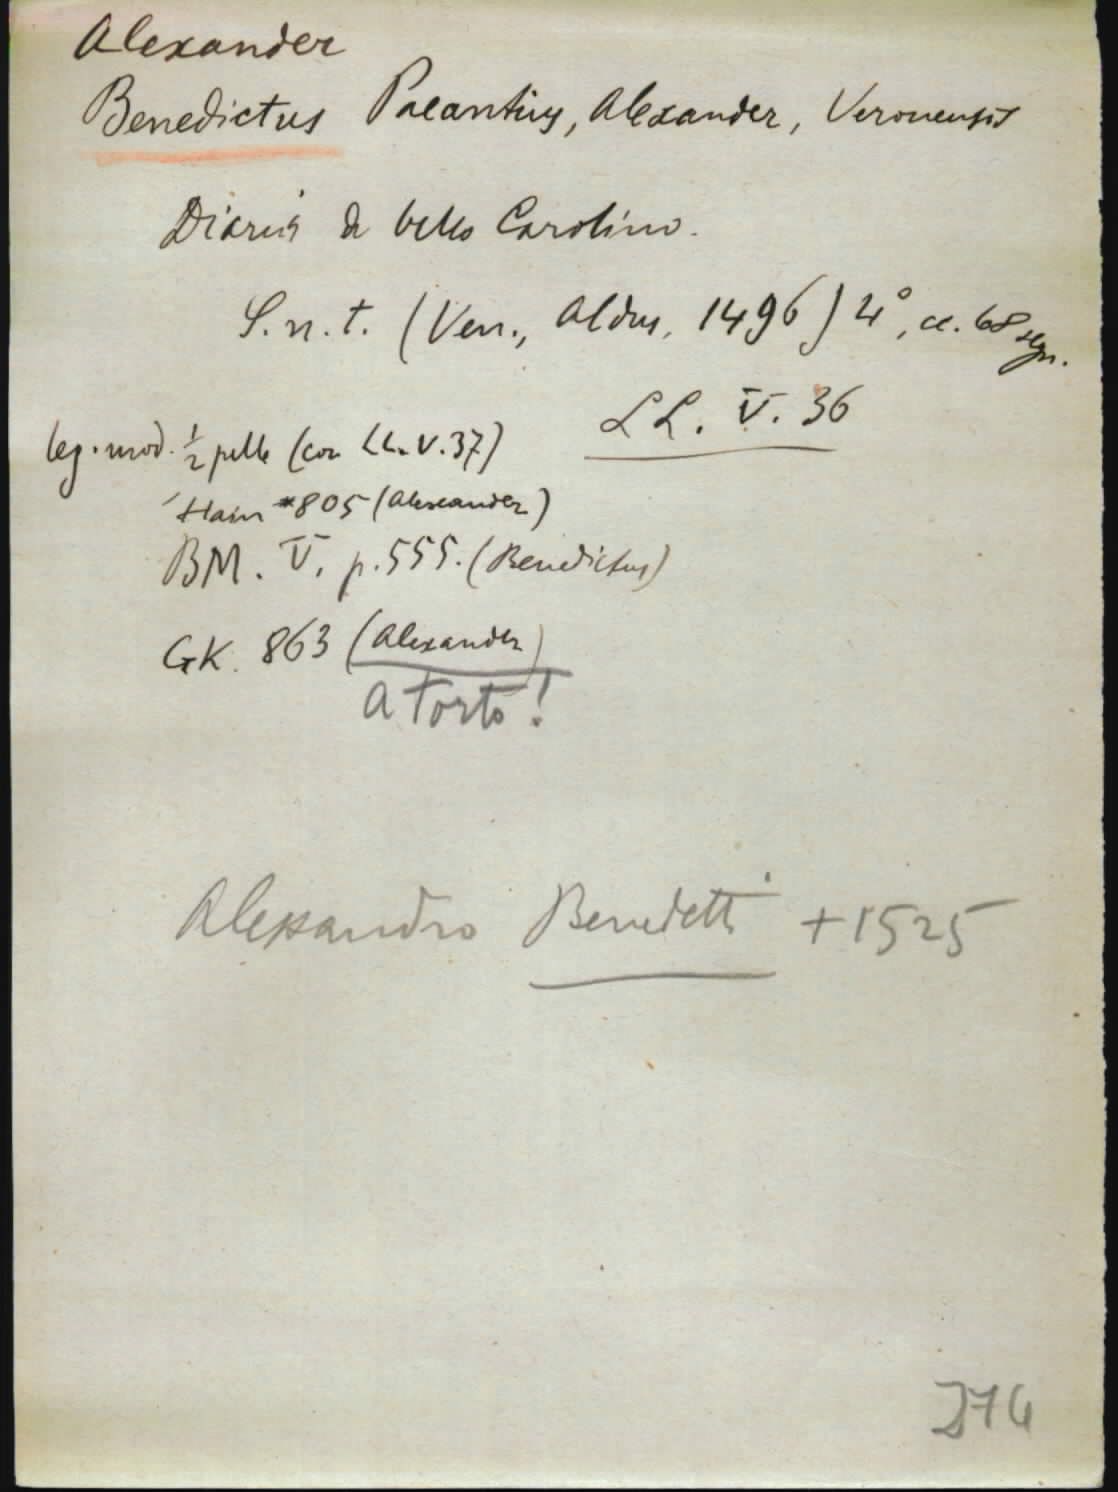 Alexander
Benedictus Paeantius, Alexander, Veronensis
Diaria de bello Carolino.
S.n.t. (Ven., Aldus, 1496) 4°, cc. 68 segn.
LL. V. 36
leg. mod. ½ pelle (con LL. V. 37)
Hain *805 (Alexander)
BM. V. p. 555. (Benedictus)
GK. 863 (Alexander)
a torto!
Alessandro Benedetti +1525